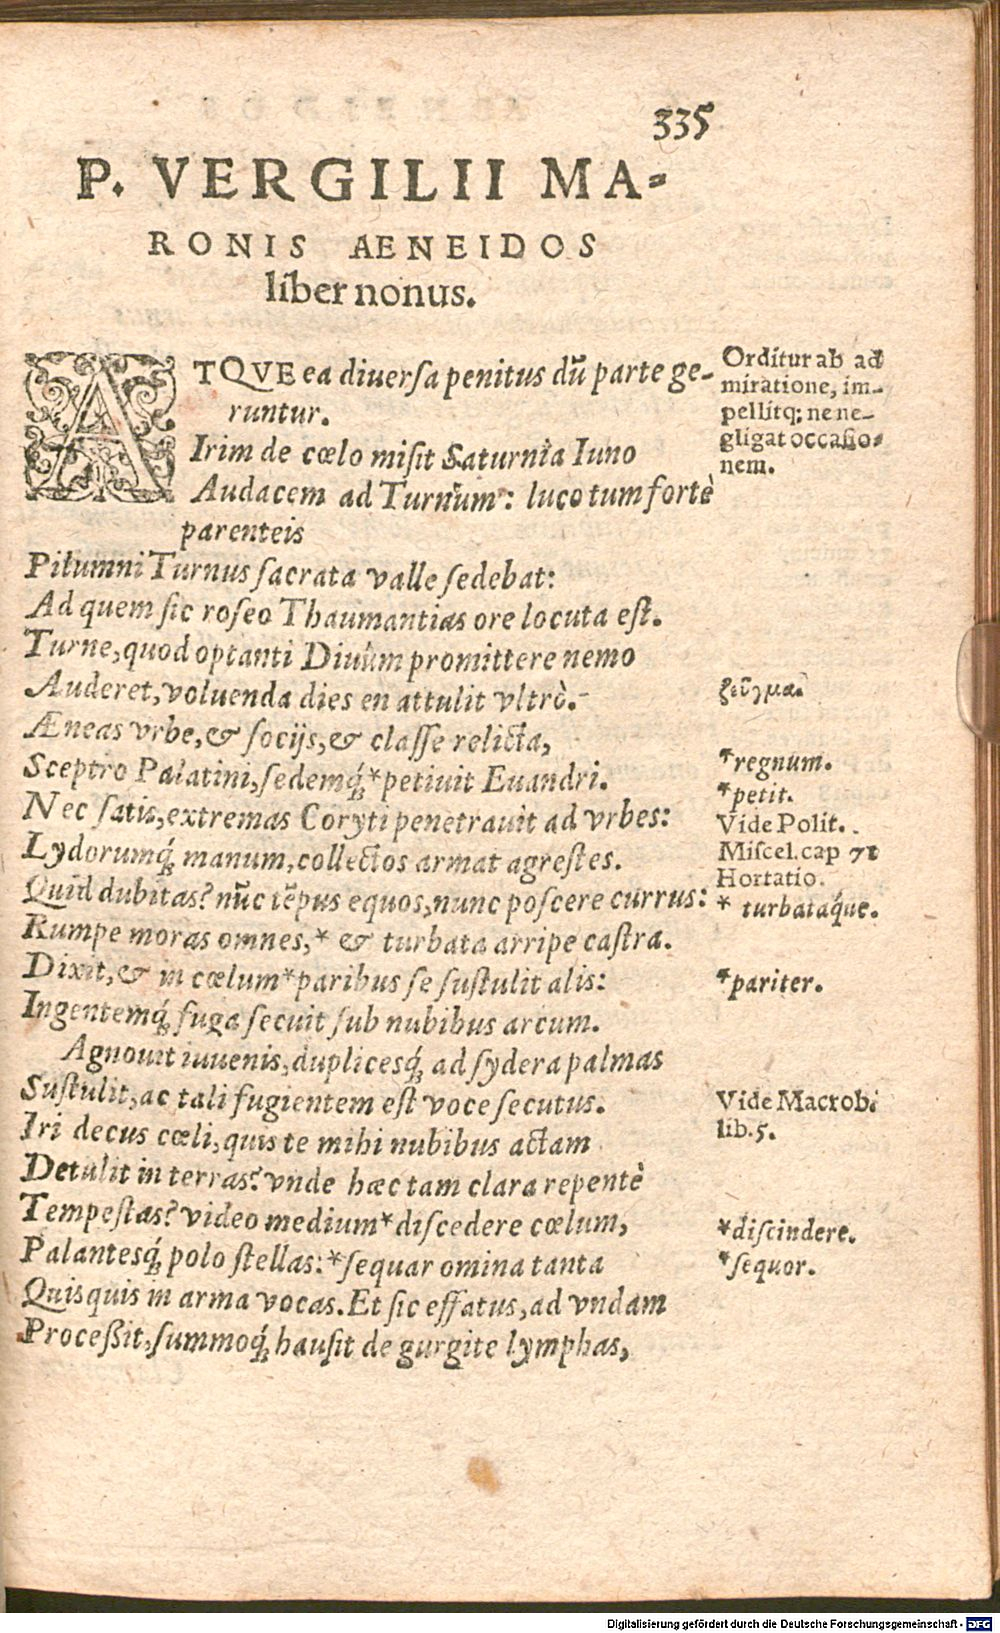 335
P. VERGILII MA-
RONIS AENEIDOS
liber nonus.
ATQVE ea diuersa penitus dũ parte ge-
runtur.
Irim de cœlo misit Saturnia Iuno
Audacem ad Turnum: luco tum fortè
parenteis
Pilumni Turnus sacrata valle sedebat:
Ad quem sic roseo Thaumantias ore locuta est.
Turne, quod optanti Diuûm promittere nemo
Auderet, voluenda dies en attulit vltrò.
Æneas vrbe, & socijs, & classe relicta,
Sceptro Palatini, sedemq́; *petiuit Euandri.
Nec satis, extremas Coryti penetrauit ad vrbes:
Lydorumq́; manum, collectos armat agrestes.
Quid dubitas? nũc tẽpus equos, nunc poscere currus:
Rumpe moras omnes, * & turbata arripe castra.
Dixit, & in cœlum *paribus se sustulit alis:
Ingentemq́; fuga secuit sub nubibus arcum.
Agnouit iuuenis, duplicesq́; ad sydera palmas
Sustulit, ac tali fugientem est voce secutus.
Iri decus cœli, quis te mihi nubibus actam
Detulit in terras? vnde hæc tam clara repentè
Tempestas? video medium *discedere cœlum,
Palantesq́; polo stellas: *sequar omina tanta
Quisquis in arma vocas. Et sic effatus, ad vndam
Proceßit, summoq́; hausit de gurgite lymphas,
Orditur ab ad
miratione, im-
pellitq; ne ne-
gligat occasio-
nem.
ζεῦγμα.
*regnum.
*petit.
Vide Polit.
Miscel. cap 71
Hortatio.
* turbatáque.
*pariter.
Vide Macrob.
lib. 5.
*discindere.
*sequor.
Digitalisierung gefördert durch die Deutsche Forschungsgemeinschaft - DFG